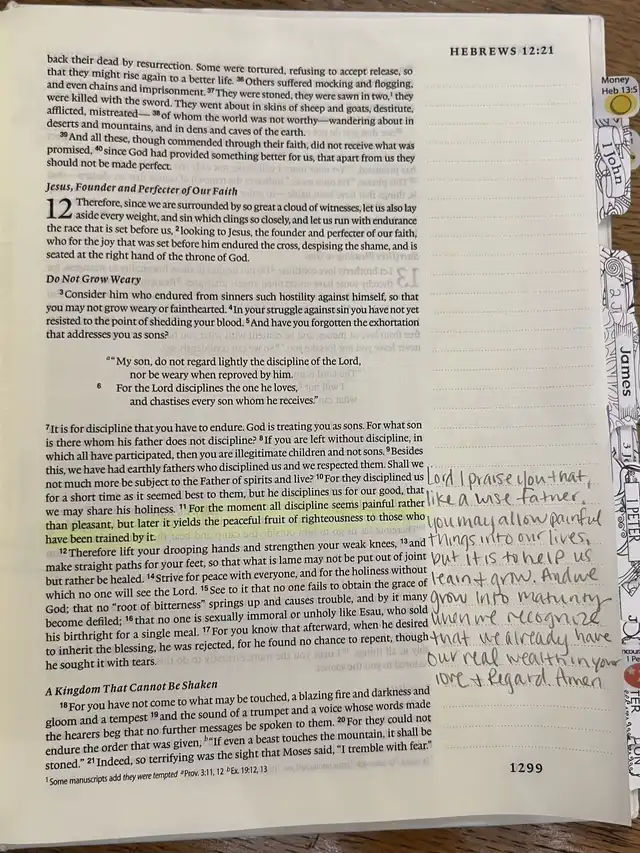 HEBREWS 12:21
back their dead by resurrection. Some were tortured, refusing to accept release, so
that they might rise again to a better life. 36 Others suffered mocking and flogging,
and even chains and imprisonment. 37 They were stoned, they were sawn in two,1 they
were killed with the sword. They went about in skins of sheep and goats, destitute,
afflicted, mistreated— 38 of whom the world was not worthy—wandering about in
deserts and mountains, and in dens and caves of the earth.
39 And all these, though commended through their faith, did not receive what was
promised, 40 since God had provided something better for us, that apart from us they
should not be made perfect.
Jesus, Founder and Perfecter of Our Faith
12 Therefore, since we are surrounded by so great a cloud of witnesses, let us also lay
aside every weight, and sin which clings so closely, and let us run with endurance
the race that is set before us, 2 looking to Jesus, the founder and perfecter of our faith,
who for the joy that was set before him endured the cross, despising the shame, and is
seated at the right hand of the throne of God.
Do Not Grow Weary
3 Consider him who endured from sinners such hostility against himself, so that
you may not grow weary or fainthearted. 4 In your struggle against sin you have not yet
resisted to the point of shedding your blood. 5 And have you forgotten the exhortation
that addresses you as sons?
a "My son, do not regard lightly the discipline of the Lord,
nor be weary when reproved by him.
6 For the Lord disciplines the one he loves,
and chastises every son whom he receives."
7 It is for discipline that you have to endure. God is treating you as sons. For what son
is there whom his father does not discipline? 8 If you are left without discipline, in
which all have participated, then you are illegitimate children and not sons. 9 Besides
this, we have had earthly fathers who disciplined us and we respected them. Shall we
not much more be subject to the Father of spirits and live? 10 For they disciplined us
for a short time as it seemed best to them, but he disciplines us for our good, that
we may share his holiness. 11 For the moment all discipline seems painful rather
than pleasant, but later it yields the peaceful fruit of righteousness to those who
have been trained by it.
12 Therefore lift your drooping hands and strengthen your weak knees, 13 and
make straight paths for your feet, so that what is lame may not be put out of joint
but rather be healed. 14 Strive for peace with everyone, and for the holiness without
which no one will see the Lord. 15 See to it that no one fails to obtain the grace of
God; that no "root of bitterness" springs up and causes trouble, and by it many
become defiled; 16 that no one is sexually immoral or unholy like Esau, who sold
his birthright for a single meal. 17 For you know that afterward, when he desired
to inherit the blessing, he was rejected, for he found no chance to repent, though
he sought it with tears.
A Kingdom That Cannot Be Shaken
18 For you have not come to what may be touched, a blazing fire and darkness and
gloom and a tempest 19 and the sound of a trumpet and a voice whose words made
the hearers beg that no further messages be spoken to them. 20 For they could not
endure the order that was given, b "If even a beast touches the mountain, it shall be
stoned." 21 Indeed, so terrifying was the sight that Moses said, "I tremble with fear."
1 Some manuscripts add they were tempted a Prov. 3:11, 12 b Ex. 19:12, 13
1299
Lord I praise you that,
like a wise father,
you may allow painful
things into our lives,
but it is to help us
learn + grow. And we
grow into maturity
when we recognize
that we already have
our real wealth in your
love + regard. Amen
Money
Heb 13:5
1 John
2 J
James
3 J
1 PETER
1 Pe